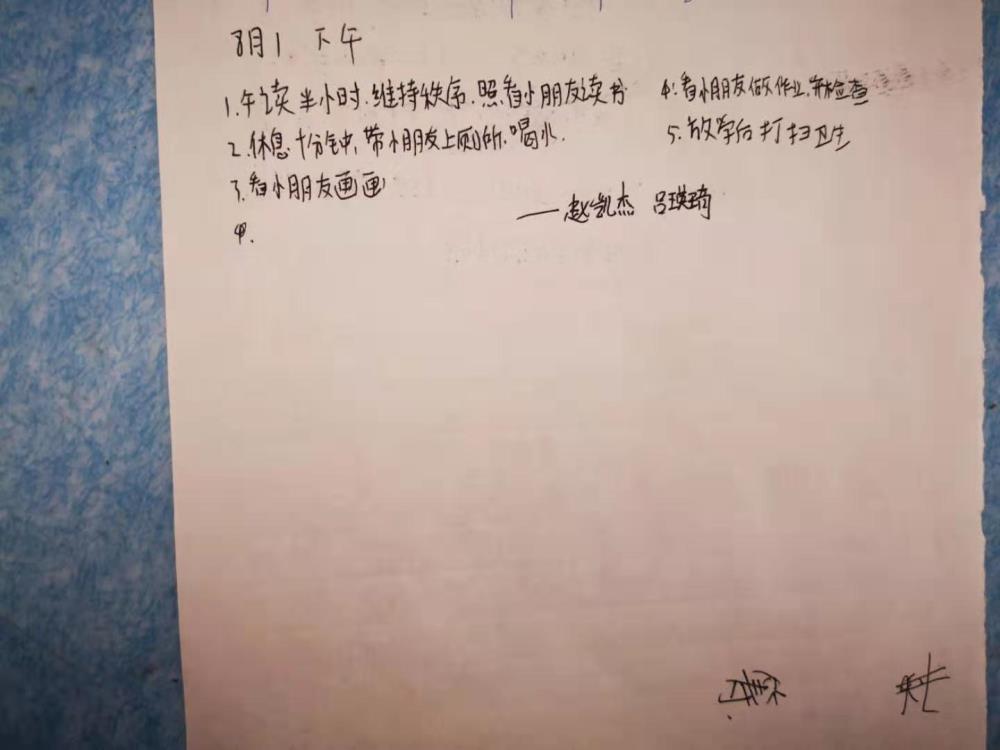 8月1 下午
1.午读半小时,维持秩序,照看小朋友读书
2.休息十分钟,带小朋友上厕所,喝水.
3.看小朋友画画
4.
4.看小朋友做作业,并检查
5.放学后打扫卫生
——赵凯杰 吕瑛琦